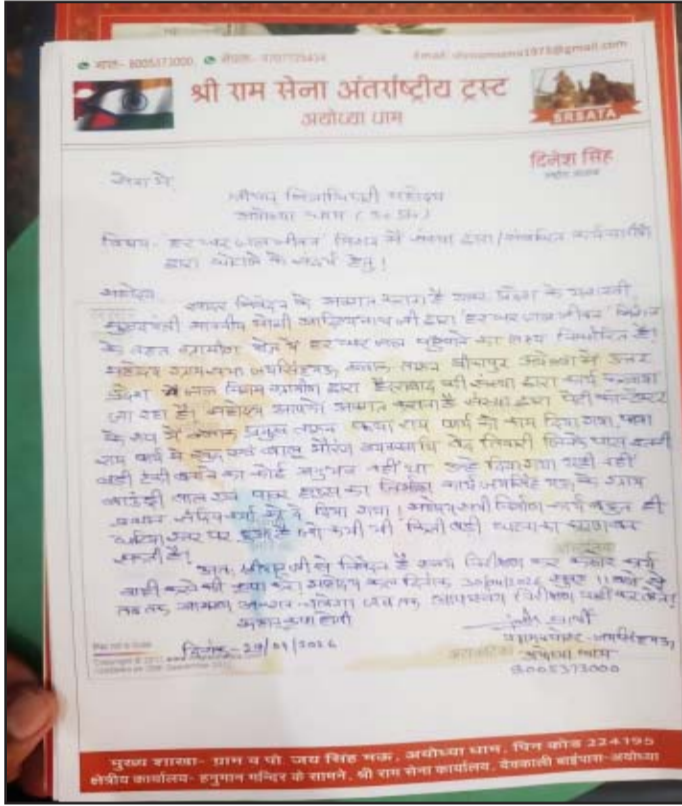 भारत- 8005373000,
Email
श्री राम सेना अंतर्राष्ट्रीय ट्रस्ट
अयोध्या धाम
SRSATA
दिनेश सिंह
सेवा में,
श्रीमान जिलाधिकारी महोदय
अयोध्या धाम (उ० प्र०)
विषय- हर घर जल जीवन मिशन में संस्था द्वारा
द्वारा के संदर्भ हेतु।
महोदय,
सादर निवेदन के अवगत कराना है उत्तर प्रदेश के यशस्वी
मुख्यमंत्री माननीय योगी आदित्यनाथ जी द्वारा हर घर जल जीवन मिशन
के तहत ग्रामीण क्षेत्र में हर घर जल पहुंचाने का लक्ष्य निर्धारित है।
महोदय ग्रामसभा जयसिंहमऊ ब्लाक तारुन बीकापुर अयोध्या में उत्तर
प्रदेश जल निगम ग्रामीण द्वारा हैदराबाद की संस्था द्वारा कार्य करवाया
जा रहा है। महोदय आपको अवगत कराना है संस्था द्वारा पेटी कान्टेक्टर
के रूप में ब्लाक प्रमुख तारुन राम को काम दिया गया,
राम
बड़ी टंकी बनाने का कोई अनुभव नहीं था उन्हें दिया गया यही नहीं
बाउंड्री वाल एवं पम्प हाउस का निर्माण कार्य जयसिंह मऊ के ग्राम
प्रधान को दे दिया गया। महोदय सभी निर्माण कार्य बहुत ही
घटिया स्तर पर हुआ है जो कभी भी किसी बड़ी घटना का
सकती है।
अतः श्रीमान जी से निवेदन है स्वयं निरीक्षण कर कार्य
वाही करने की कृपा करें। महोदय कल दिनांक 30/04/2026 सुबह 11 बजे से
तब तक आमरण अनशन चलेगा जब तक आप स्वयं निरीक्षण नहीं कर लेते।
महान कृपा होगी
दिनांक- 29/04/2026
जयसिंहमऊ
अयोध्या धाम
8005373000
मुख्य शाखा- ग्राम व पो. जय सिंह मऊ, अयोध्या धाम, पिन कोड 224195
क्षेत्रीय कार्यालय- हनुमान मन्दिर के सामने, श्री राम सेना कार्यालय, देवकाली बाईपास-अयोध्या